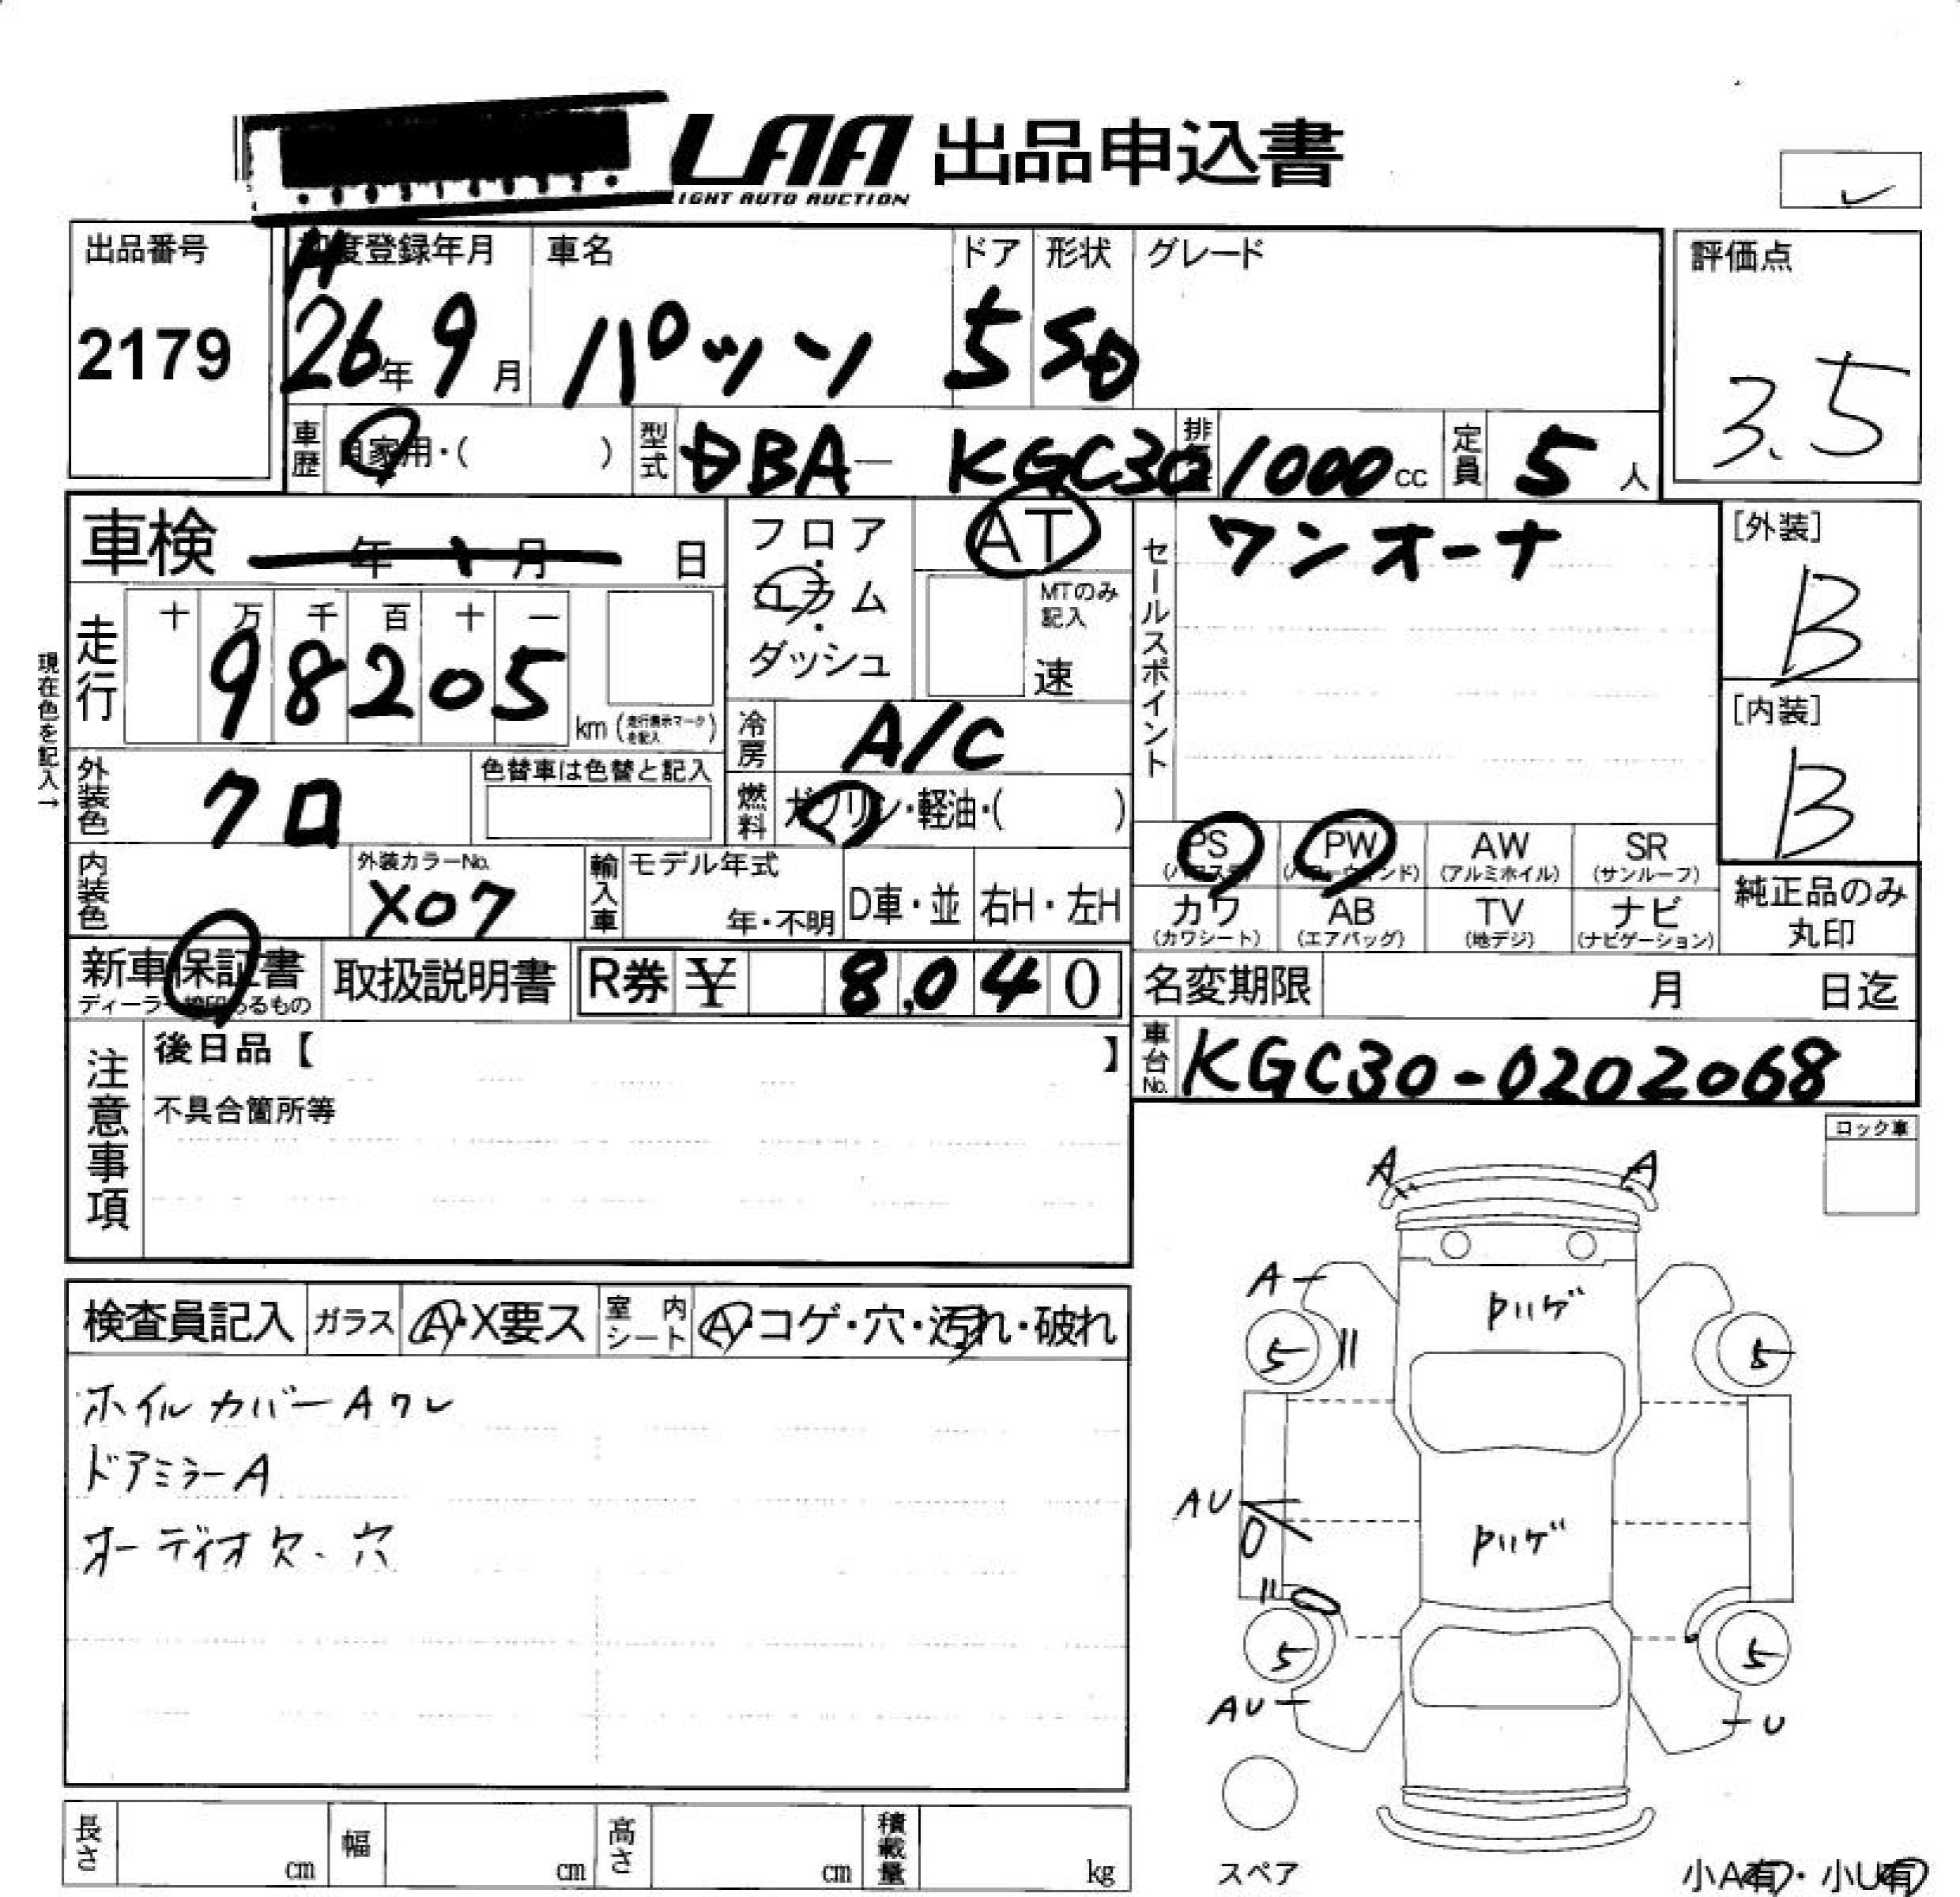 LAA 出品申込書
LIGHT AUTO AUCTION
出品番号
2179
H
初度登録年月
26年 9月
車名
パッソ
ドア
5
形状
SD
グレード
評価点
3.5
車歴
自家用・( )
型式
DBA- KGC30
排気
1000cc
定員
5人
車検 年 月 日
フロア・コラム・ダッシュ
AT
MTのみ記入
速
セールスポイント
ワンオーナ
[外装]
B
[内装]
B
現在色を記入→
走行
十 万 千 百 十 一
9 8 2 0 5 km (走行表示マークを記入)
冷房
A/C
外装色
クロ
色替車は色替と記入
燃料
ガソリン・軽油・( )
PS
(パワステ)
PW
(パワーウインド)
AW
(アルミホイル)
SR
(サンルーフ)
内装色
外装カラーNo.
X07
輸入車
モデル年式
年・不明
D車・並
右H・左H
カワ
(カワシート)
AB
(エアバッグ)
TV
(地デジ)
ナビ
(ナビゲーション)
純正品のみ
丸印
新車保証書
ディーラー捺印あるもの
取扱説明書
R券 ¥ 8,040
名変期限 月 日迄
注意事項
後日品【 】
不具合箇所等
車台No.
KGC30-0202068
ロック車
A A
A
ハゲ
5 5
検査員記入
ガラス
A・X要ス
室内シート
A・コゲ・穴・汚れ・破れ
ホイルカバーAワレ
ドアミラーA
オーディオ欠、穴
AU
ハゲ
5 5
AU U
スペア
長さ cm
幅 cm
高さ cm
積載量 kg
小A有・小U有